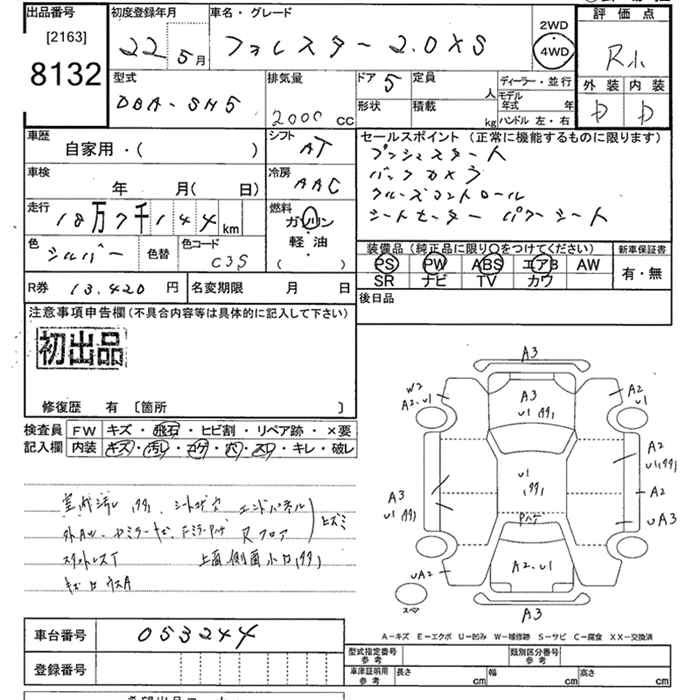 出品番号
[2163]
8132
初度登録年月
22年 5月
車名・グレード
フォレスター 2.0XS
2WD
・
4WD
評 価 点
R小
外 装 内 装
D D
型式
DBA-SH5
排気量
2000 CC
ドア 5
定員 人
形状
積載 kg
ディーラー・並行
モデル年式 年
ハンドル 左・右
車歴
自家用・( )
シフト
AT
車検
年 月( 日)
冷房
AAC
走行
18万7千144 km
燃料
ガソリン
軽油
・
( )
色
シルバー
色替
色コード
C3S
R券 13,420 円
名変期限 月 日
セールスポイント (正常に機能するものに限ります)
プッシュスタート
バックカメラ
クルーズコントロール
シートヒーター パワーシート
装備品 (純正品に限り○をつけてください)
PS PW ABS エアB AW
SR ナビ TV カワ
新車保証書
有・無
後日品
注意事項申告欄(不具合内容等は具体的に記入して下さい)
初出品
修復歴 有 〔箇所 〕
検査員
記入欄
FW キズ・飛石・ヒビ割・リペア跡・×要
内装 キズ・汚レ・コゲ・穴・スレ・キレ・破レ
室内汚レ
エンドパネル
Rフロア
ヒズミ
スタットレスT
上面 側面
A3
W2
A2.U1
A3
U1
A2
U1
A2
U1
U1
A2
A3
U1
UA3
Pハゲ
UA2
A2.U1
UA2
スペア
A3
A－キズ E－エクボ U－凹み W－補修跡 S－サビ C－腐食 XX－交換済
車台番号
053244
登録番号
型式指定番号
参考
類別区分番号
参考
車庫証明用
参考
長さ cm
幅 cm
高さ cm